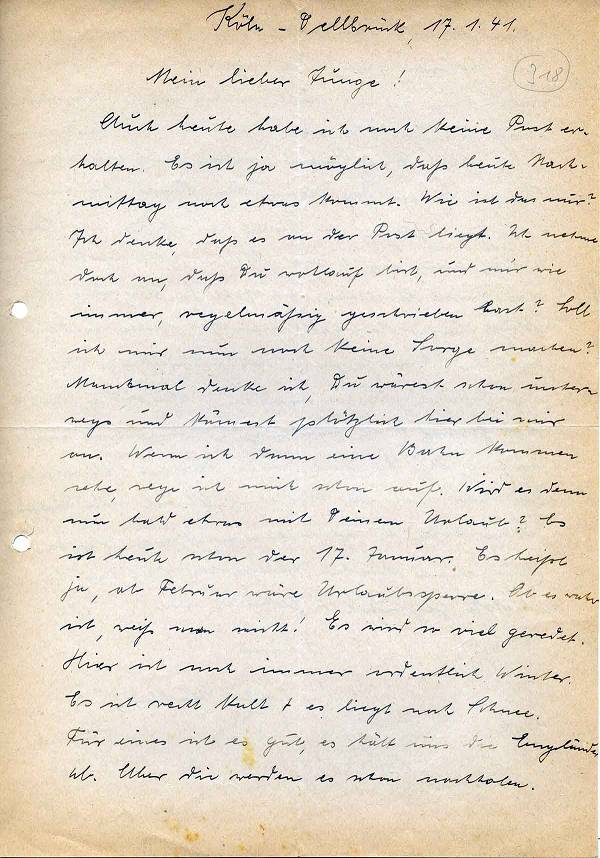 Köln-Dellbrück, 17.1.41.
318
Mein lieber Junge!
Auch heute habe ich noch keine Post er-
halten. Es ist ja möglich, daß heute Nach-
mittag noch etwas kommt. Wie ist das nur?
Ich denke, daß es an der Post liegt. Ich nehme
doch an, daß Du wohlauf bist, und mir wie
immer, regelmässig geschrieben hast? Soll
ich mir nun noch keine Sorge machen?
Manchmal denke ich, Du wärest schon unter-
wegs und kämest plötzlich hier bei mir
an. Wenn ich dann eine Bahn kommen
sehe, rege ich mich schon auf. Wird es denn
nun bald etwas mit Deinem Urlaub? Es
ist heute schon der 17. Januar. Es hiess
ja, ab Februar wäre Urlaubssperre. Ob es wahr
ist, weiß man nicht! Es wird so viel geredet.
Hier ist noch immer ordentlich Winter.
Es ist recht kalt + es liegt noch Schnee.
Für eines ist es gut, es hält uns die Engländer
ab. Aber die werden es schon nachholen.